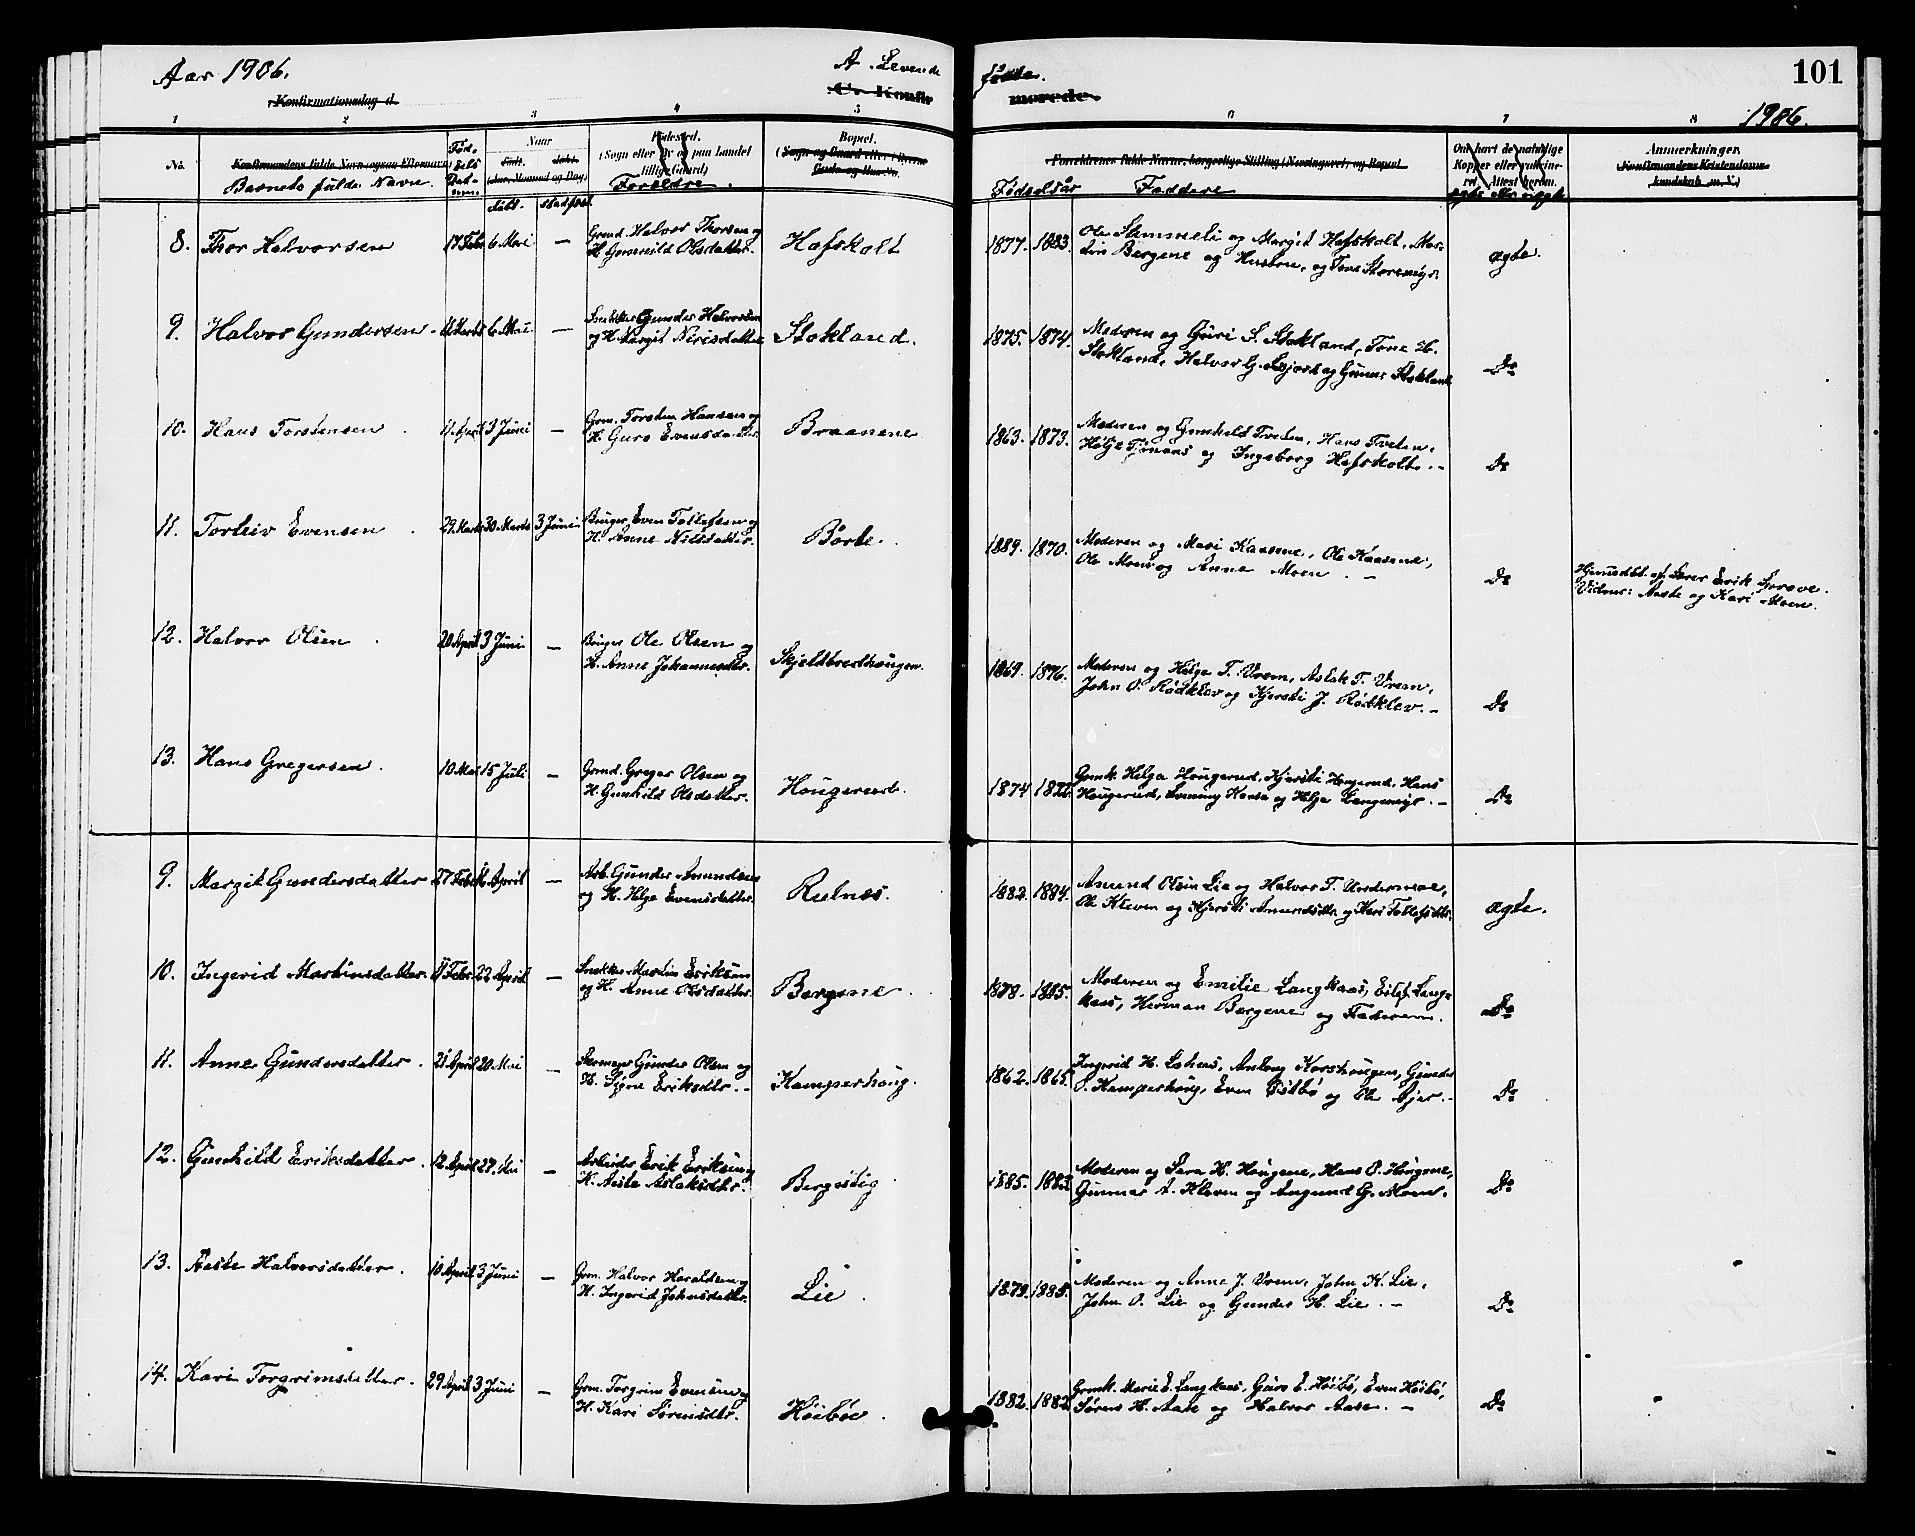 Aar 1906.
A. Levende
fødte.
101
Konfirmationsdag d.
C. Konfir
merede.
1906.
1 2 3 4 5 6 7 8
No.
Konfirmandens fulde Navn (ogsaa Efternavn)
Barnets fulde Navn.
Naar
Født. døbt.
(Aar, Maaned og Dag)
døbt. stadfæst.
Fødested.
(Sogn eller By og paa Landet
tillige Gaard)
Forældre.
Bopæl.
(Sogn og Gaard eller i Byerne
Gade og Hus-No.
Forældrenes fulde Navne, borgerlige Stilling (Næringsvei) og Bopæl.
Fødselsår Faddere
Om havt de naturlige
Kopper eller vaccine-
ret. Attest herom.
ægte eller uægte
Anmærkninger.
(Konfirmandens Kristendoms-
kundskab m. V.)
8. Thor Halvorsen 17 Febr 6 Mai — Grmd. Halvor Thorsen og
H. Gunnild Olsdatter. Hafskolt
1877. 1883. Ole Slimmeli og Margit Hafskolt, Mar-
tin Bergene og Hustru, og Tone Storemyr. ægte.
9. Halvor Gundersen. 6 Mai — Snekker Gunder Halvorsen
og H. Margit Nirisdatter Stokland.
1875. 1874. Moderen og Guri S. Stokland, Tone H.
Stokland, Halvor G. og Gunder Stokland Do
10. Hans Torstensen 11 April 3 Juni — Grm. Torsten Hansen og
H. Guro Evensdatter. Braanene
1863. 1873. Moderen og Gunhild Tveten, Hans Tveten,
Helje og Ingeborg Hafskolt. — Do
11. Torleiv Evensen 29 Marts 30 Marts 3 Juni Bruger Even Tollefsen og
H. Anne Nilsdatter. Børte.
1889. 1870. Moderen og Mari Kaasene, Ole Kaasene,
Ole Moen og Anne Moen. — Do
Hjemmedbt. af Lærer Erik
Vidner: Aaste og Kari Moen.
12. Halvor Olsen 20 April 3 Juni — Bruger Ole Olsen og
H. Anne Johannesdtr. Skjeldbredhaugen.
1869. 1876. Moderen og Helge T. Vrem, Aslak T. Vrem,
John O. Rødklev og Kjersti J. Rødklev. — Do
13. Hans Gregersen. 10 Mai 15 Juli — Grmd. Greger Olsen og
H. Gunhild Olsdatter. Hougerud.
1874 Grmk. Helga Hougerud, Kjersti Hougerud, Hans
Hougerud, Kaasa og Helge Langemyr. — Do
9. Margit Gundersdatter 27 Febr April — Arb. Gunder Amundsen
og H. Helge Evensdatter. Rulnæs.
1882. 1884. Amund Olsen Lie og Halvor T.
Ole Kleven og Kjersti Amundsdtr. og Kari Tollefsdtr. ægte.
10. Ingerid Martinsdatter. Febr. 22 April — Snekker Martin Eriksen
og H. Anne Olsdatter. Bergene
1878. 1885. Moderen og Emilie Langkaas, Eilef Lang-
kaas, Herman Bergene og Faderen. Do
11. Anne Gundersdatter. 21 April 20 Mai — Gunder Olsen og
H. Signe Eriksdtr. — Kamperhaug.
1862. 1865. Ingerid H. Anlaug Korshaugen, Gunder
O. Kamperhaug, Even Østbø og Ole — Do
12. Gunhild Eriksdatter. 12 April 27 Mai — Arbeider Erik Eriksen og
H. Aaste Aslaksdtr. Bergestig
1885. Moderen og Sara H. Haugene, Hans O. Haugene,
Gunnar A. Kleven og Aagund G. Moen. Do
13. Aaste Halvorsdatter. 10 April 3 Juni — Grm. Halvor Haraldsen og
H. Ingerid Johnsdatter. Lie.
1879. 1885. Moderen og Anne J. Vrem, John K. Lie,
John O. Lie og Gunder H. Lie. — Do
14. Kari Torgrimsdatter. 29 April 3 Juni — Grm. Torgrim Evensen og
H. Kari Sørensdtr. Høibøe.
1882. 1882 Grmk. Marie E. Langkaas, Guro E. Høibø, Even Høibø,
Søren H. Aase og Halvor Aase. — Do